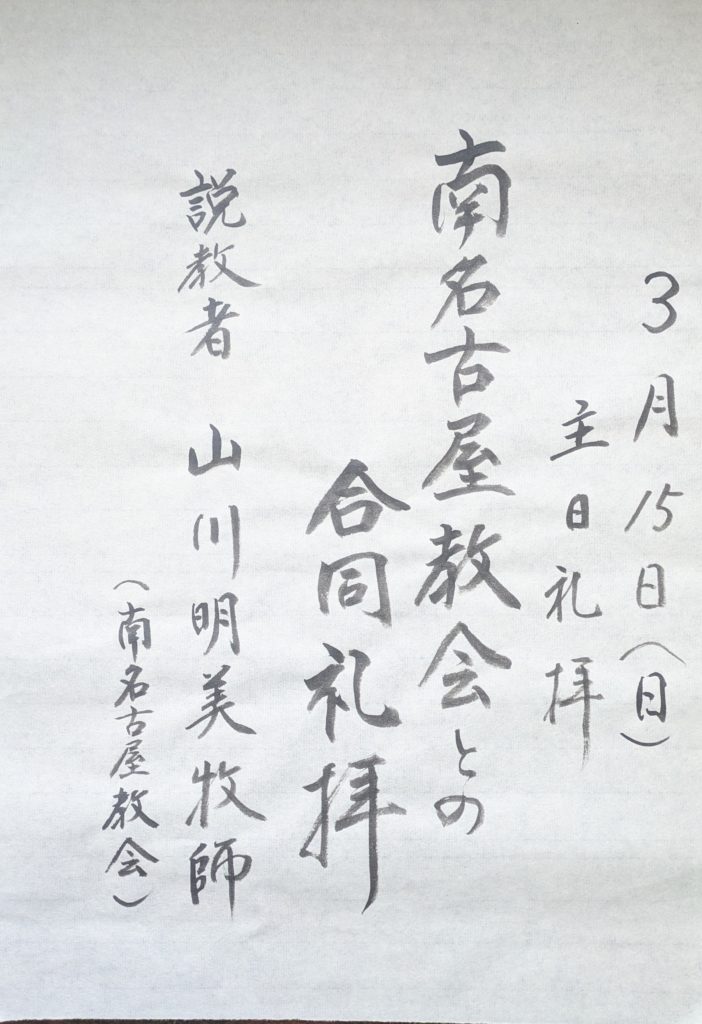 3月15日(日)
主日礼拝
南名古屋教会との
合同礼拝
説教者 山川明美牧師
(南名古屋教会)